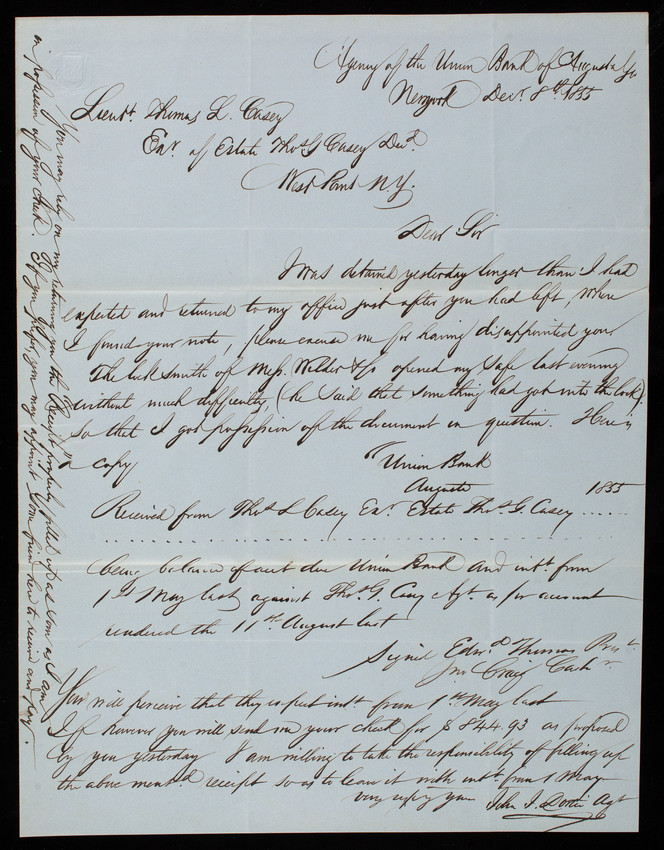 Agency of the Union Bank of Augusta Ga
New York Decr. 8th. 1855
Lieut. Thomas L. Casey
Exr. of Estate Thos. G Casey Decd.
West Point N.Y.
Dear Sir
I was detained yesterday longer than I had
expected and returned to my office just after you had left, where
I found your note, please excuse me for having disappointed you.
The lock smith of Mess. Wilder & Co opened my safe last evening
without much difficulty, (he said that something had got into the lock).
so that I got possession of the document in question. Here is
a copy
"Union Bank
Augusta 1855
Received from Thos. L Casey Exr. Estate Thos. G. Casey .....
being balance of acct due Union Bank and intt. from
1st May last against Thos. G. Casey Agt. as per account
rendered the 11th. August last
Signed Edwd. Thomas Prest.
Jno Craig Cashr.
You will perceive that they expect intt. from 1st May last
If however you will send me your check for $844.93 as proposed
by you yesterday I am willing to take the responsibility of filling up
the above mentd. receipt so as to leave it with intt. from 1 May
very respy. your John J. Agt
You may rely on my returning you the Receipt properly filled up as soon as I am
in possession of your check. If you prefer you may appoint some friend here to receive and pay.